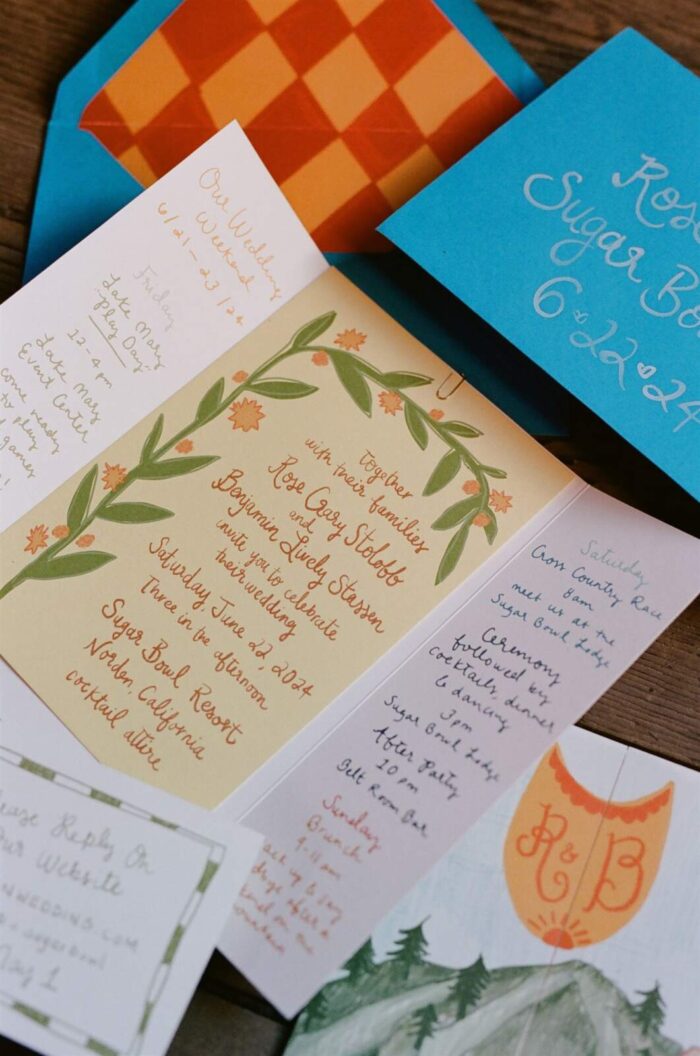 Rose
Sugar Bo
6.22.24
Our Wedding
Weekend
6/21-23/24
Friday
Lake Mary
Play Day
12-4pm
Lake Mary
Event Center
come ready
to play
games
!
together
with their families
Rose Gary Stolobb
and
Benjamin Lively Stassen
invite you to celebrate
their wedding
Saturday June 22, 2024
Three in the afternoon
Sugar Bowl Resort
Norden, California
cocktail attire
Saturday
Cross Country Race
8am
meet us at the
Sugar Bowl Lodge
Ceremony
followed by
cocktails, dinner
& dancing
3pm
Sugar Bowl Lodge
After Party
10pm
Belt Room Bar
Sunday
Brunch
9-11am
after a
on the
mountain
R & B
ease Reply On
our Website
NWEDDING.COM
May 1